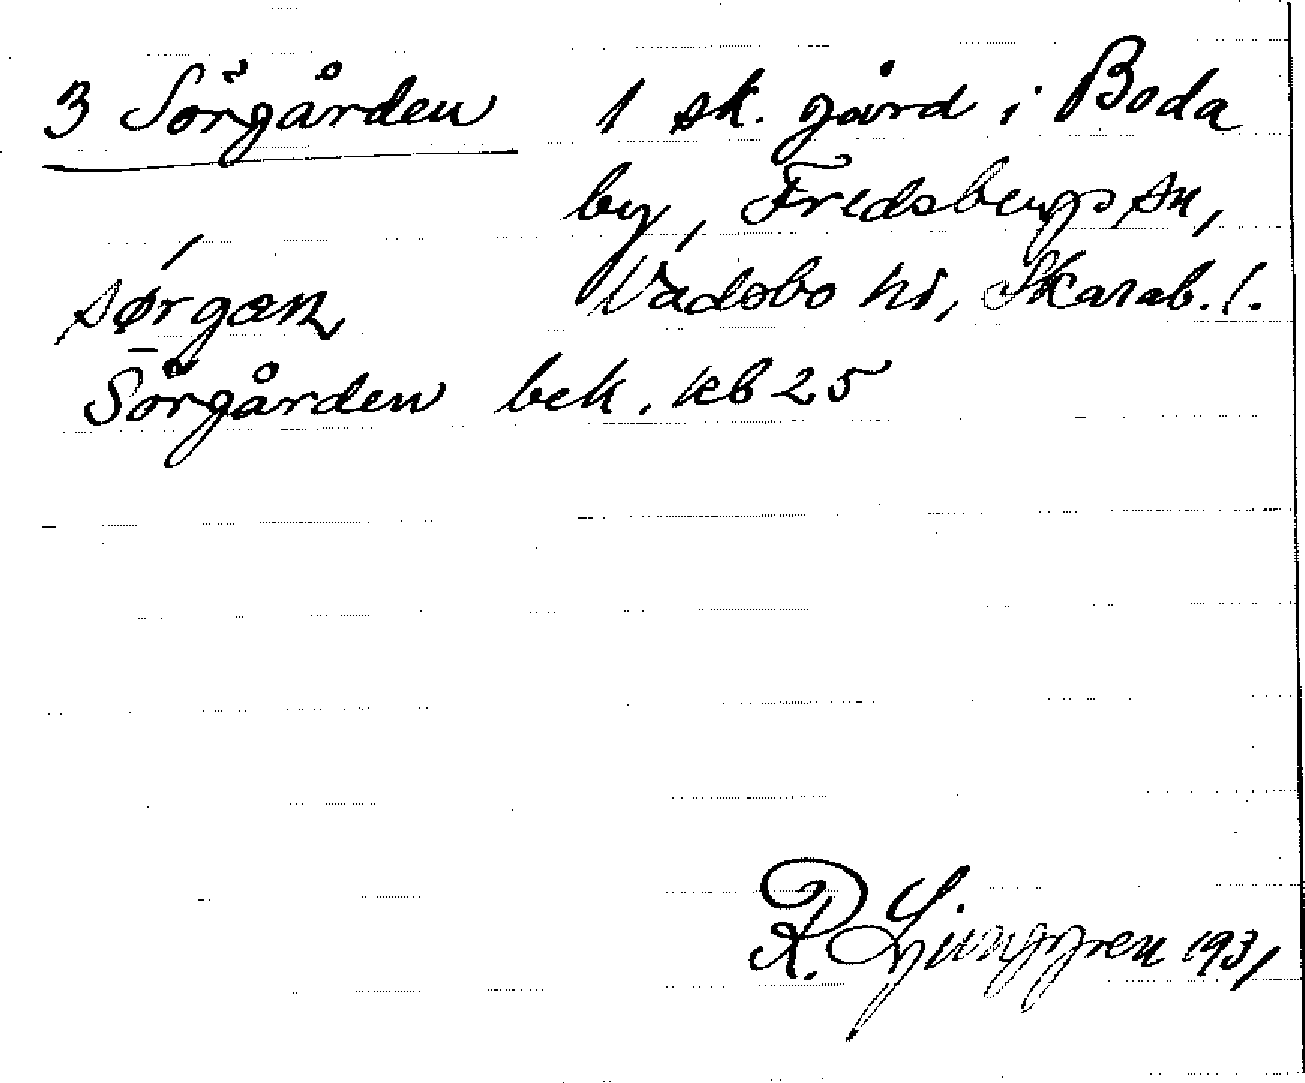 3 Sörgården 1 sk. gård i Boda
by, Fredsbergs sn,
sørgæn, Vadsbo hd, Skarab. l.
Sörgården bek. kb 25
R. Ljunggren 1931